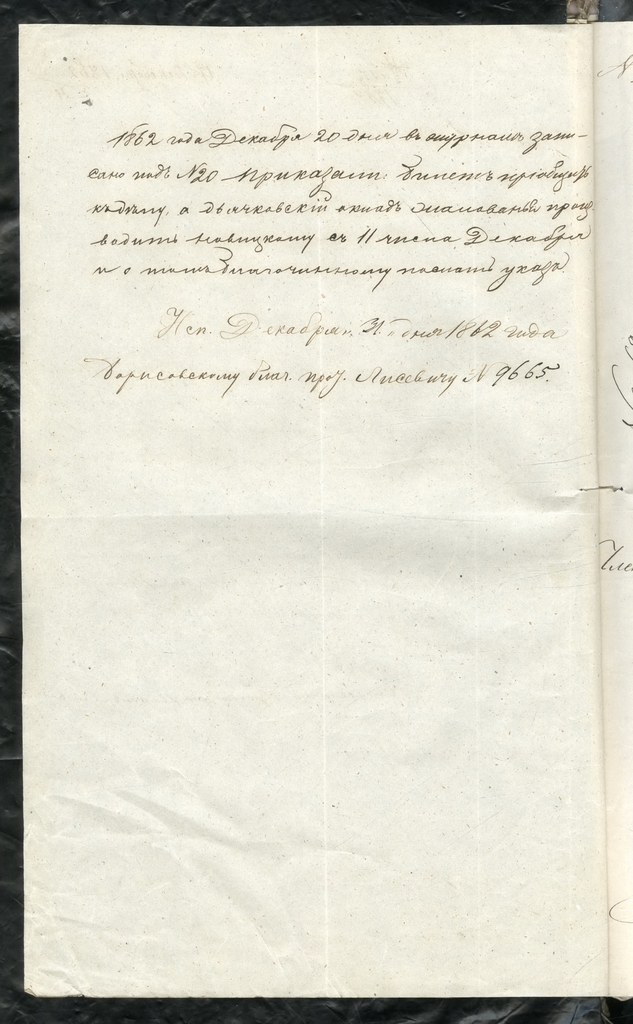 1862 года Декабря 20 дня въ журналѣ запи-
сано подъ №20 приказали: билетъ пріобщить
къ дѣлу, а дьячковскій окладъ жалованья произ-
водить Новицкому съ 11 числа Декабря
и о томъ благочинному послать указъ
Исп. Декабря „ 31 „ дня 1862 года
Борисовскому благ. прот. Лисевичу № 9665.